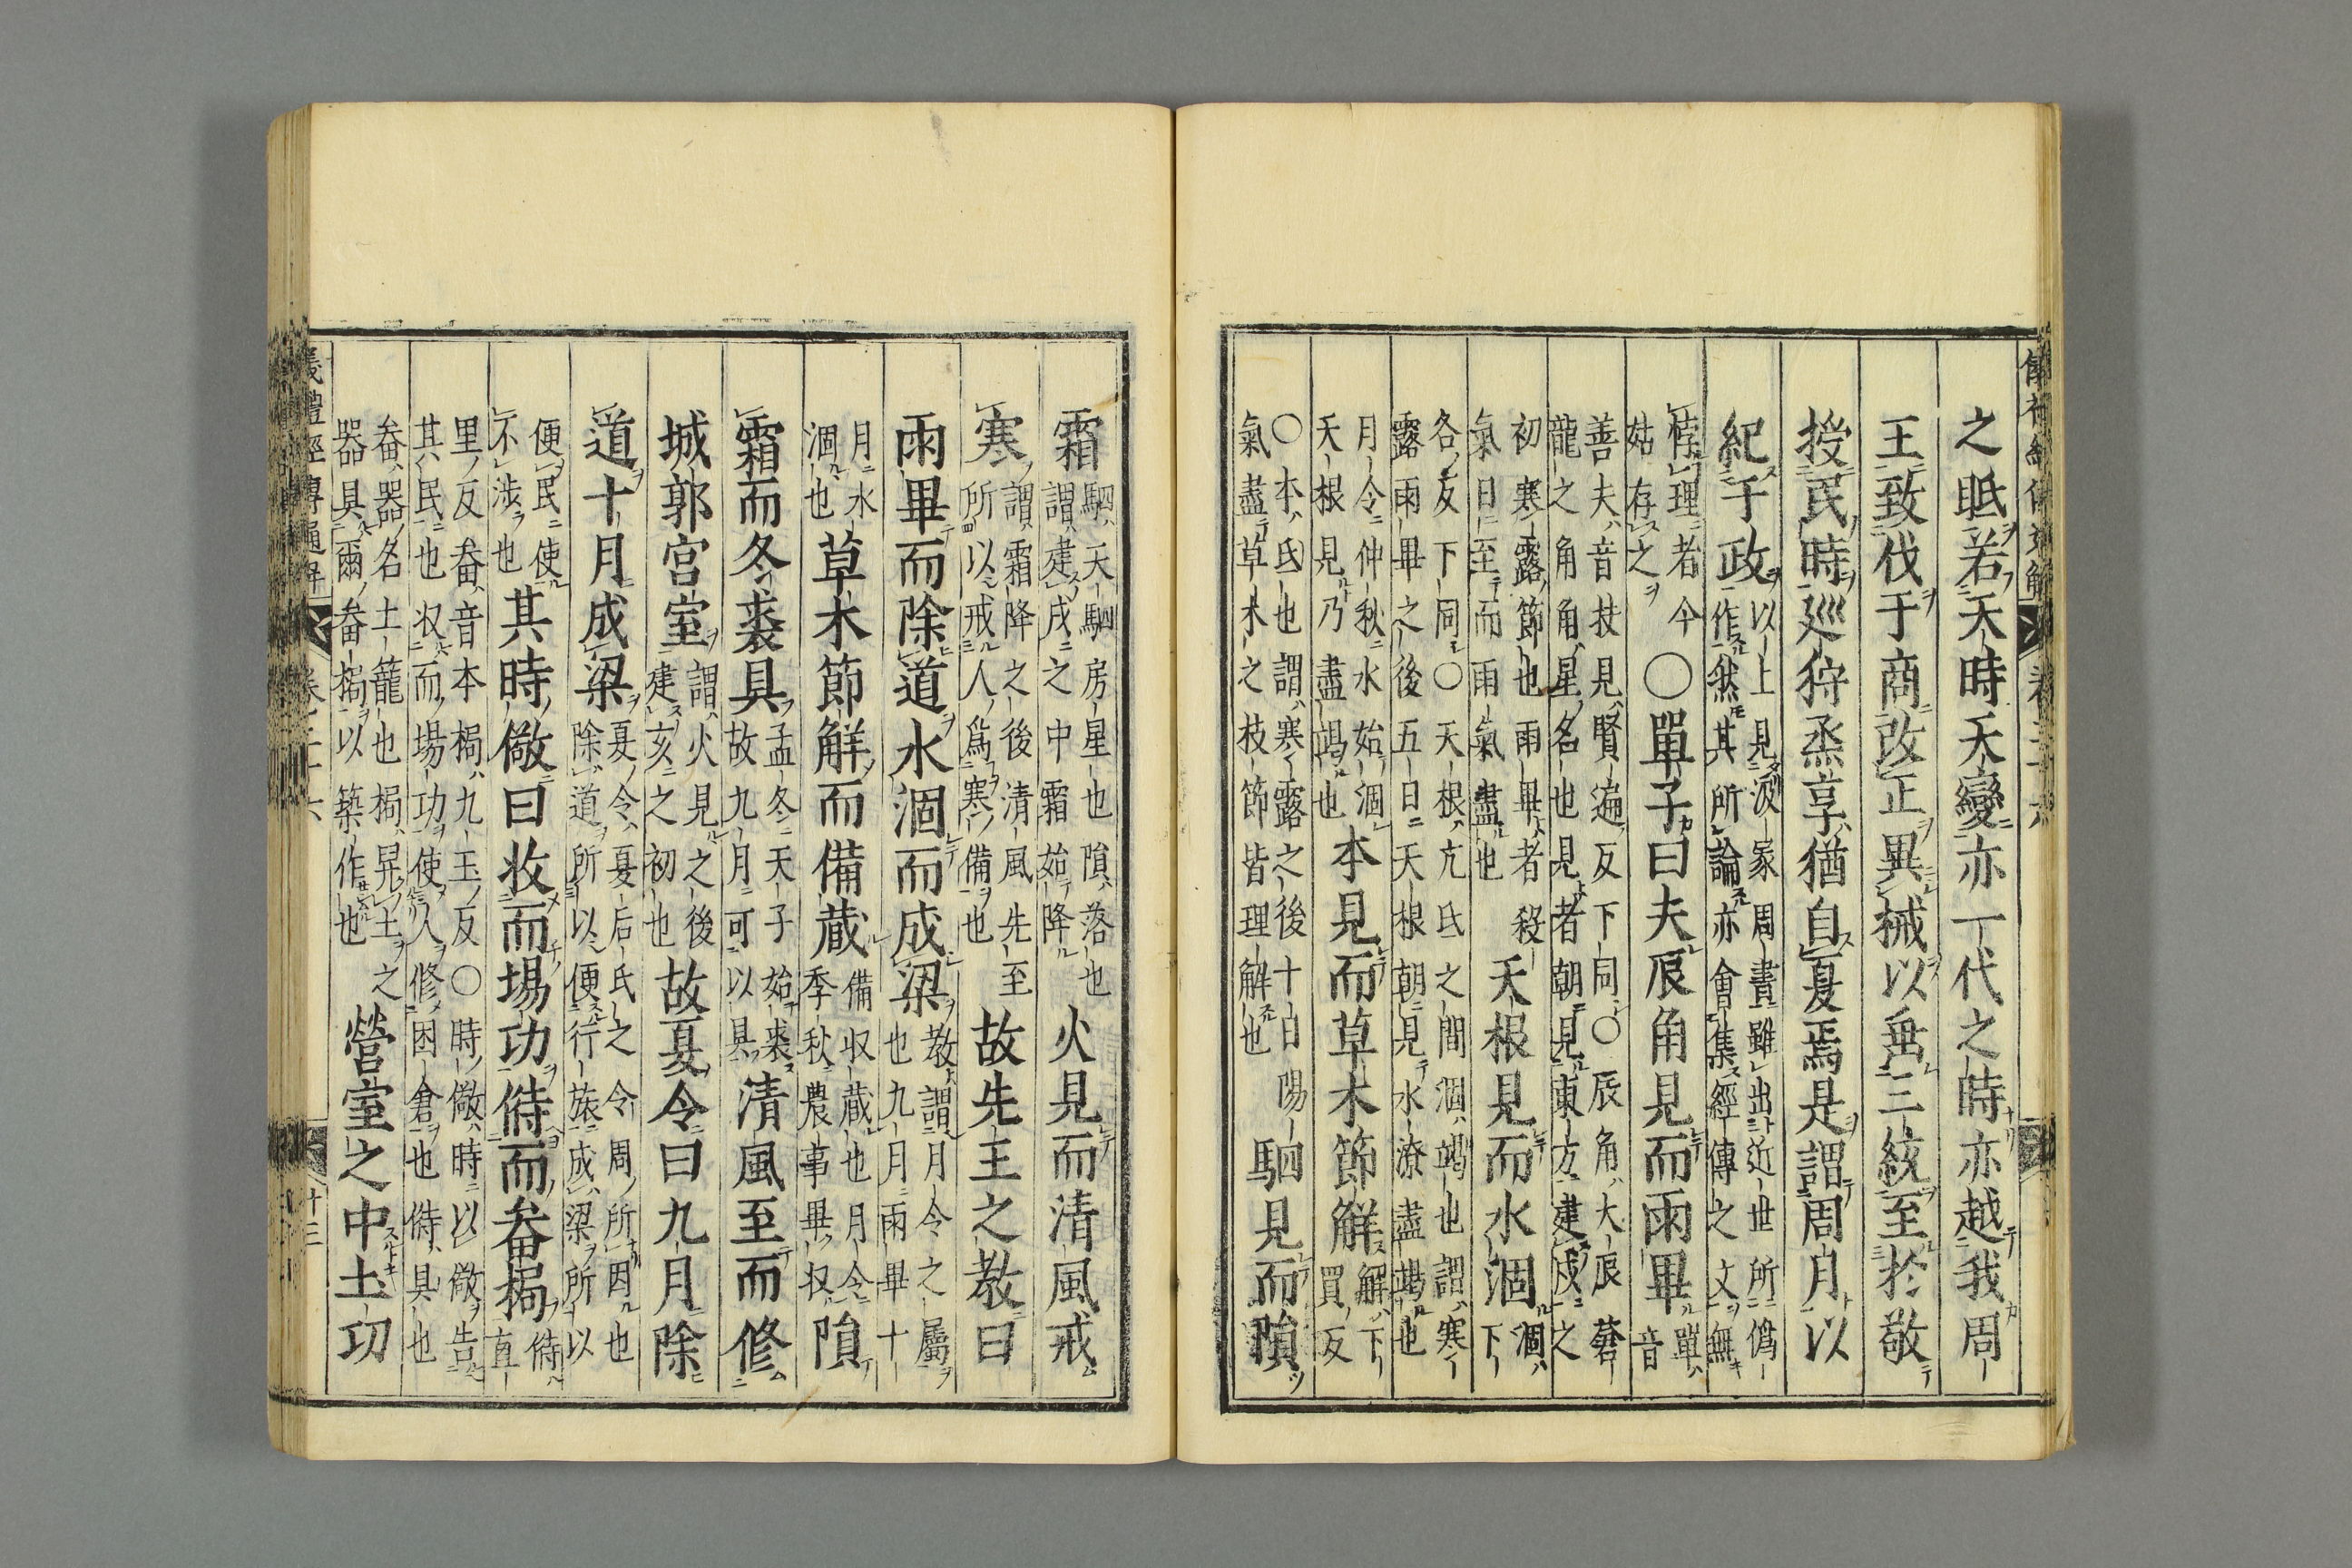 之眡若天時天變亦一代之時亦越我周
王致伐于商改正異械以垂三統至於敬
授民時巡狩烝享猶自夏焉是謂周月以
紀于政 以上見汲冢周書雖出近世所僞
作然其所論亦會集經傳之文無
悖理者今
姑存之 ○單子曰夫辰角見而雨畢 單
音
善夫音扶見賢遍反下同○辰角大辰蒼
龍之角角星名也見者朝見東方建戌之
初寒露節也雨畢者殺
氣日至而雨氣盡也 天根見而水涸 涸
下
各反下同○天根亢氐之間涸竭也謂寒
露雨畢之後五日天根朝見水潦盡竭也
月令仲秋水始涸
天根見乃盡竭也 本見而草木節解 解下
買反
○本氐也謂寒露之後十日陽
氣盡草木之枝節皆理解也 駟見而隕
霜 駟天駟房星也隕落也
謂建戌之中霜始降 火見而清風戒
寒 謂霜降之後清風先至
所以戒人為寒備也 故先王之教曰
雨畢而除道水涸而成梁 教謂月令之屬
也九月雨畢十
月水
涸也 草木節解而備藏 備收藏也月令
季秋農事畢收 隕
霜而冬裘具 孟冬天子始裘
故九月可以具 清風至而修
城郭宮室 謂火見之後
建亥之初也 故夏令曰九月除
道十月成梁 夏令夏后氏之令周所因也
除道所以便行旅成梁所以
便民使
不涉也 其時儆曰收而場功偫而畚挶 偫
直
里反畚音本挶九玉反○時儆時以儆告
其民也收而場功使人修囷倉也偫具也
畚器名土籠也挶舁土之
器具爾畚挶以築作也 營室之中土功
儀禮經傳通解
卷二十六
十三